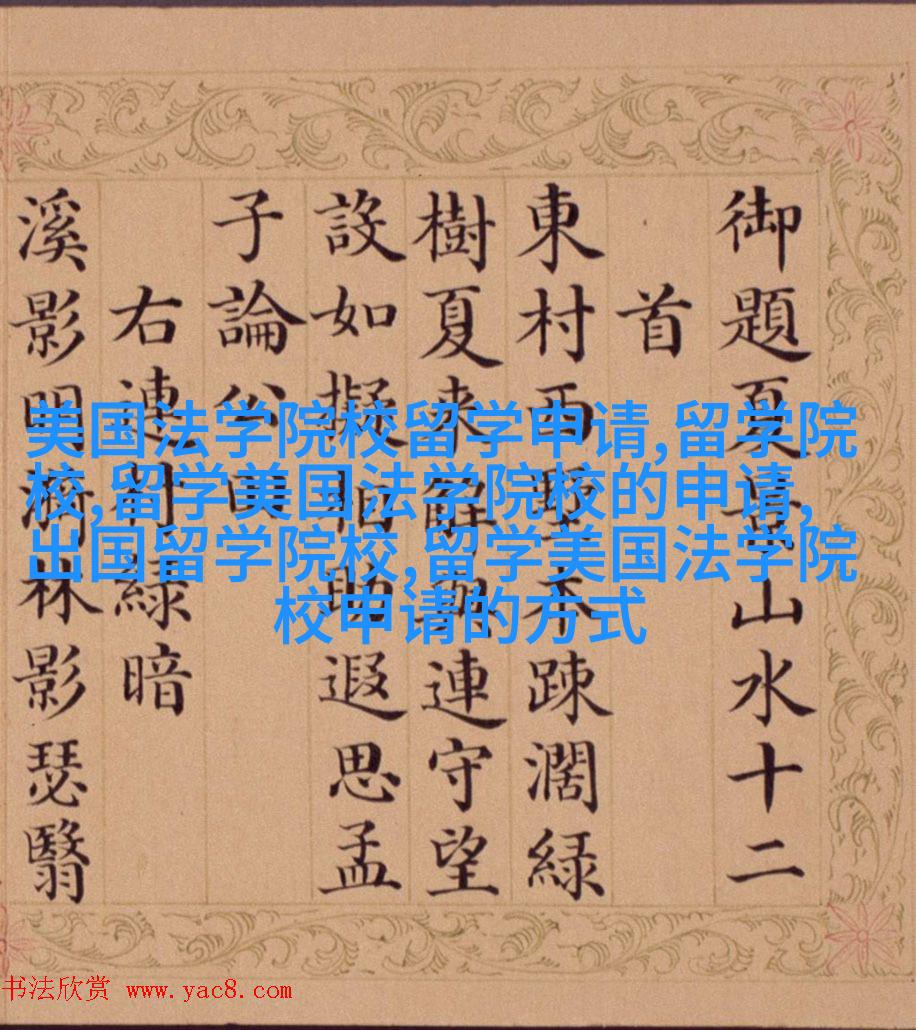 御題夏山水十二
首
東村雨疎濶緑
樹夏来連守望
設如擬相助遐思孟
子論公田
右連村緑暗
溪影明林影瑟翳
美国法学院校留学申请,留学院
校,留学美国法学院校的申请,
出国留学院校,留学美国法学院
校申请的方式
书法欣赏 www.yac8.com